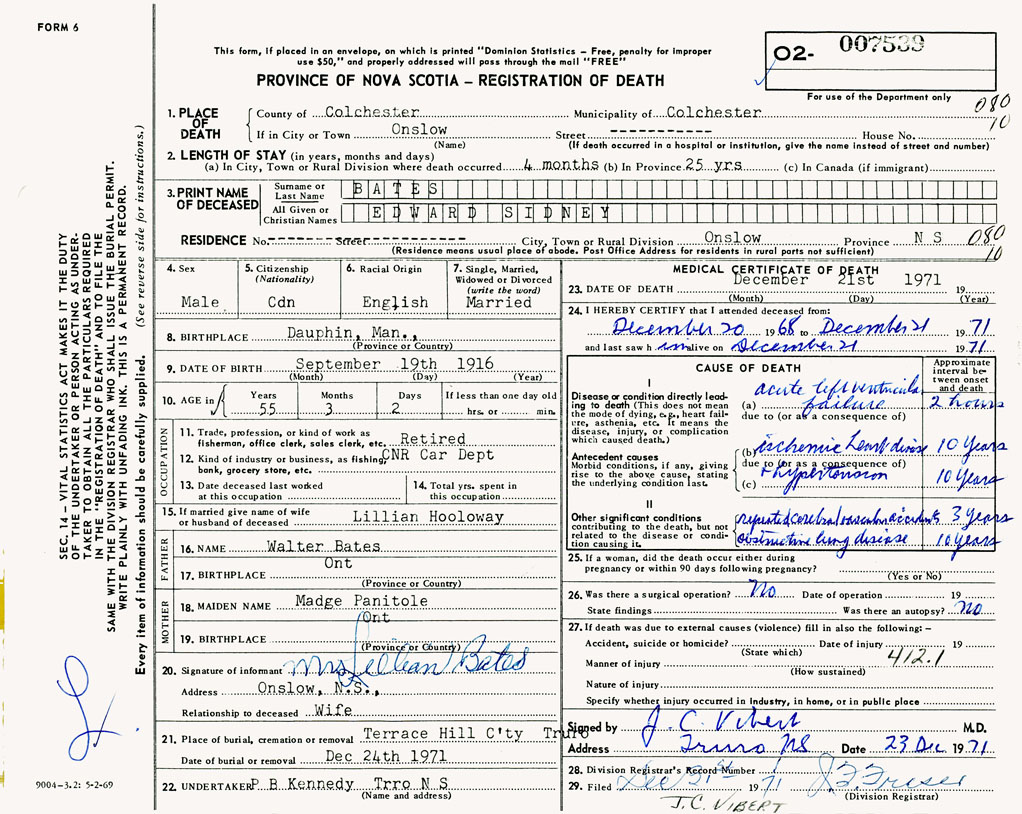 FORM 6
This form, if placed in an envelope, on which is printed "Dominion Statistics – Free, penalty for improper
use $50," and properly addressed will pass through the mail "FREE"
PROVINCE OF NOVA SCOTIA – REGISTRATION OF DEATH
O2- 007539
For use of the Department only
080
10
1. PLACE OF DEATH
County of Colchester Municipality of Colchester
If in City or Town Onslow Street ----------- House No.
(Name) (If death occurred in a hospital or institution, give the name instead of street and number)
2. LENGTH OF STAY (in years, months and days)
(a) In City, Town or Rural Division where death occurred 4 months (b) In Province 25 yrs (c) In Canada (if immigrant)
3. PRINT NAME OF DECEASED
Surname or Last Name BATES
All Given or Christian Names EDWARD SIDNEY
RESIDENCE No. Street City, Town or Rural Division Onslow Province N S
080
10
(Residence means usual place of abode. Post Office Address for residents in rural parts not sufficient)
4. Sex
Male
5. Citizenship
(Nationality)
Cdn
6. Racial Origin
English
7. Single, Married,
Widowed or Divorced
(write the word)
Married
8. BIRTHPLACE Dauphin, Man.,
(Province or Country)
9. DATE OF BIRTH September 19th 1916
(Month) (Day) (Year)
10. AGE in
Years Months Days If less than one day old
55 3 2 hrs. or min.
OCCUPATION
11. Trade, profession, or kind of work as
fisherman, office clerk, sales clerk, etc. Retired
12. Kind of industry or business, as fishing,
bank, grocery store, etc. CNR Car Dept
13. Date deceased last worked
at this occupation
14. Total yrs. spent in
this occupation
15. If married give name of wife
or husband of deceased Lillian Hooloway
FATHER
16. NAME Walter Bates
17. BIRTHPLACE Ont
(Province or Country)
MOTHER
18. MAIDEN NAME Madge Panitole
19. BIRTHPLACE Ont
(Province or Country)
20. Signature of informant Mrs Lillian Bates
Address Onslow, N.S.,
Relationship to deceased Wife
21. Place of burial, cremation or removal Terrace Hill C'ty Truro
Date of burial or removal Dec 24th 1971
22. UNDERTAKER P B Kennedy Trro N S
(Name and address)
MEDICAL CERTIFICATE OF DEATH
23. DATE OF DEATH December 21st 1971 19
(Month) (Day) (Year)
24. I HEREBY CERTIFY that I attended deceased from:
December 20 1968 to December 21 1971
and last saw h im alive on December 21 1971
CAUSE OF DEATH
Approximate
interval be-
tween onset
and death
I
Disease or condition directly lead-
ing to death (This does not mean
the mode of dying, e.g., heart fail-
ure, asthenia, etc. It means the
disease, injury, or complication
which caused death.)
(a) acute left ventricular failure 2 hours
due to (or as a consequence of)
Antecedent causes
Morbid conditions, if any, giving
rise to the above cause, stating
the underlying condition last.
(b) ischemic heart disease 10 Years
due to (or as a consequence of)
(c) + hypertension 10 Years
II
Other significant conditions
contributing to the death, but not
related to the disease or condi-
tion causing it.
repeated cerebral vascular accidents 3 Years
obstructive lung disease 10 Years
25. If a woman, did the death occur either during
pregnancy or within 90 days following pregnancy?
(Yes or No)
26. Was there a surgical operation? No Date of operation 19
State findings Was there an autopsy? No
27. If death was due to external causes (violence) fill in also the following: –
Accident, suicide or homicide? Date of injury 19
(State which) 412.1
Manner of injury
(How sustained)
Nature of injury
Specify whether injury occurred in Industry, in home, or in public place
Signed by J. C. Vibert M.D.
Address Truro NS Date 23 Dec 1971
28. Division Registrar's Record Number
29. Filed Dec 31st 1971
(Division Registrar)
J.C. VIBERT
SEC. 14 – VITAL STATISTICS ACT MAKES IT THE DUTY
OF THE UNDERTAKER OR PERSON ACTING AS UNDER-
TAKER TO OBTAIN ALL THE PARTICULARS REQUIRED
IN THE "REGISTRATION OF DEATH" AND TO FILE THE
SAME WITH THE DIVISION REGISTRAR WHO SHALL ISSUE THE BURIAL PERMIT.
WRITE PLAINLY WITH UNFADING INK. THIS IS A PERMANENT RECORD.
Every item of information should be carefully supplied. (See reverse side for instructions.)
9004–3.2: 5-2-69